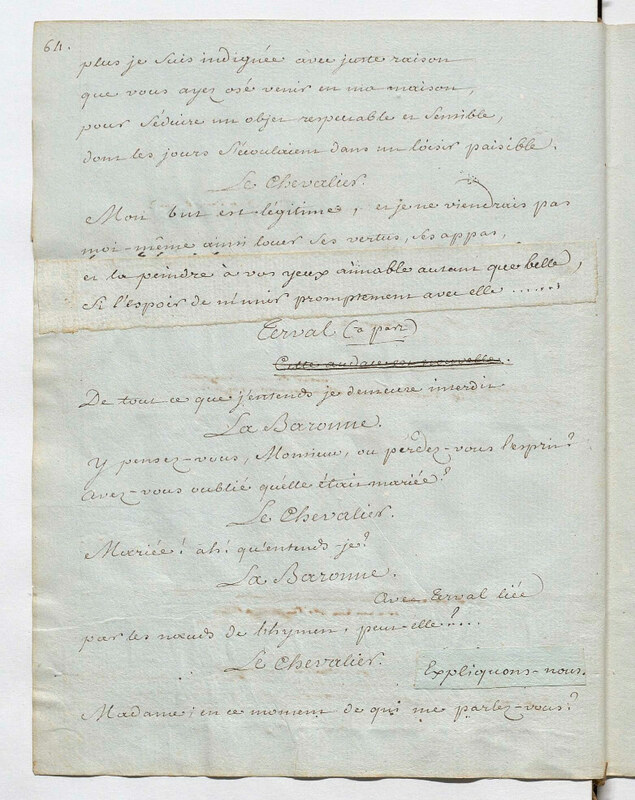 64.
plus je suis indignée avec juste raison
que vous ayez osé venir en ma maison,
pour séduire un objet respectable et sensible,
dont les jours s'écoulaient dans un loisir paisible.
Le Chevalier.
Mon but est légitime, et je ne viendrais pas
moi-même ainsi louer ses vertus, ses appas,
et la peindre à vos yeux aimable autant que belle,
si l'espoir de m'unir promptement avec elle ......
Terval (à part)
Cette audace est nouvelle.
De tout ce que j'entends je demeure interdit
La Baronne.
Y pensez-vous, Monsieur, ou perdez-vous l'esprit?
Avez-vous oublié qu'elle était mariée?
Le Chevalier.
Mariée! ah! qu'entends-je?
La Baronne.
Avec Terval liée
par les nœuds de l'hymen, peut-elle?...
Le Chevalier.
Expliquons-nous.
Madame; en ce moment de qui me parlez-vous?